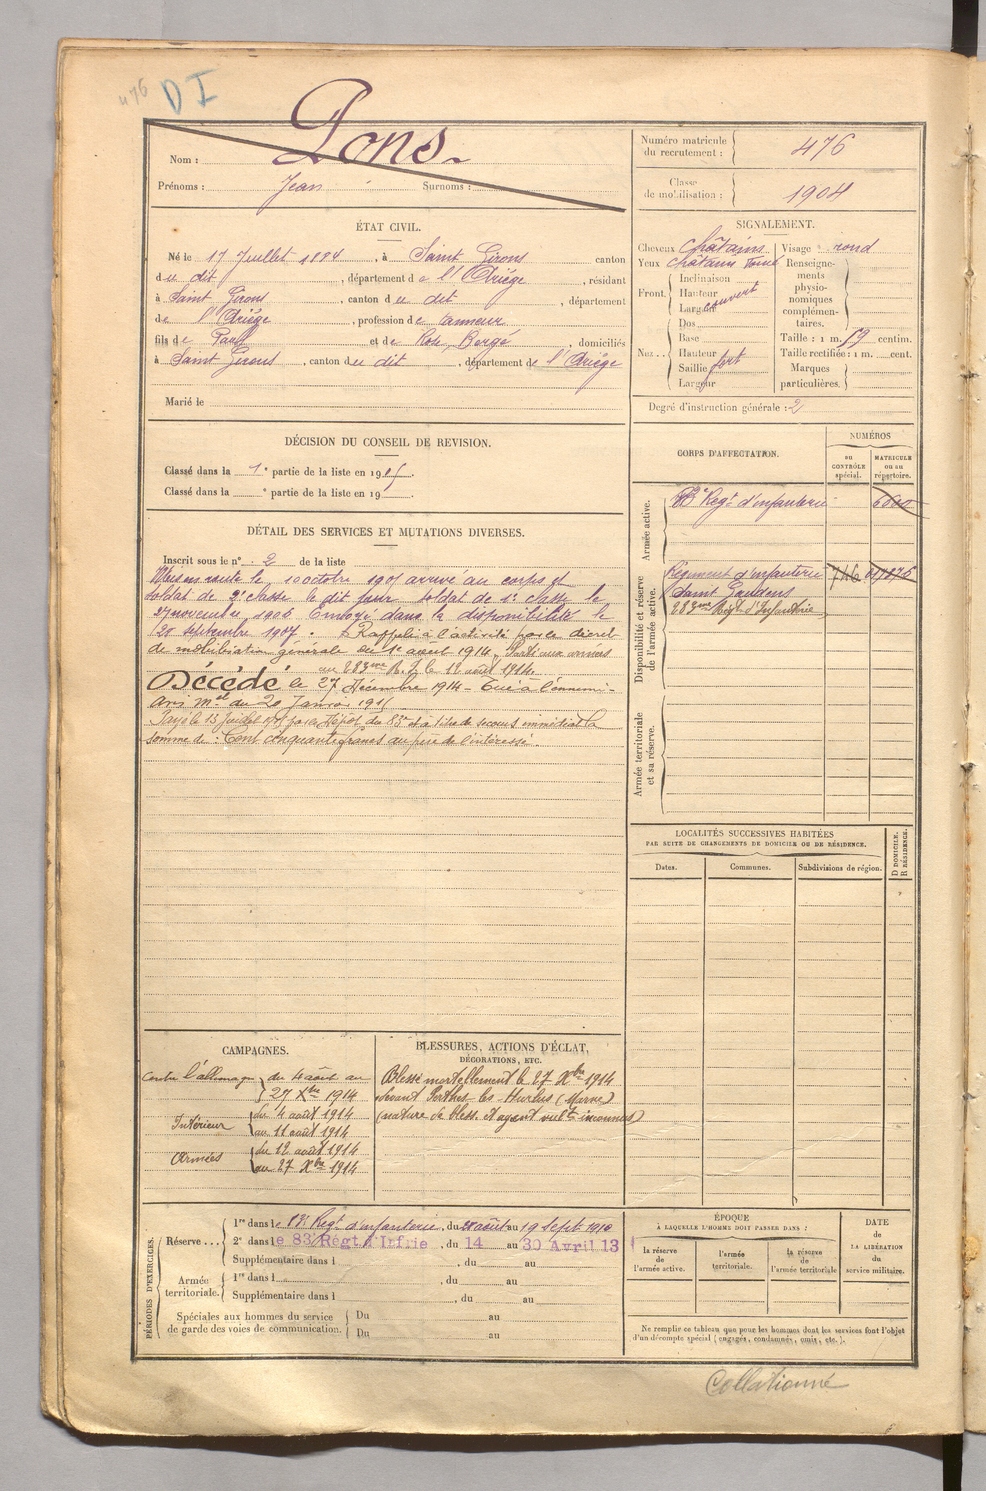 476 D I
Nom : Pons
Prénoms : Jean Surnoms :
Numéro matricule du recrutement : 476
Classe de mobilisation : 1904
ÉTAT CIVIL.
Né le 17 Juillet 1884, à Saint Girons canton
du dit, département de l'Ariége, résidant
à Saint Girons, canton du dit, département
de l'Ariége, profession de tanneur
fils de Paul et de Rose Bergé, domiciliés
à Saint Girons, canton du dit, département de l'Ariége
Marié le
SIGNALEMENT.
Cheveux Châtains
Yeux châtains foncé
Front. Inclinaison
Hauteur
Largeur couvert
Nez. Dos
Base
Hauteur
Saillie fort
Largeur
Visage rond
Renseignements physionomiques complémentaires.
Taille : 1 m. 59 centim.
Taille rectifiée : 1 m. cent.
Marques particulières.
Degré d'instruction générale : 2
DÉCISION DU CONSEIL DE REVISION.
Classé dans la 1e partie de la liste en 1905.
Classé dans la e partie de la liste en 19
DÉTAIL DES SERVICES ET MUTATIONS DIVERSES.
Inscrit sous le n° 2 de la liste
Mis en route le 10 octobre 1905 arrivé au corps et
soldat de 2e classe le dit jour soldat de 1e classe le
27 novembre 1906 Envoyé dans la disponibilité le
28 septembre 1907. Rappelé à l'activité par le décret
de mobilisation générale du 1e août 1914. Parti aux armées
au 283me R.I. le 12 août 1914.
Décédé le 27 Décembre 1914 - Tué à l'ennemi -
Avis mel du 20 Janvier 1915
Payé le 13 Juillet 1915 par le Dépôt du 83e et à titre de secours immédiat la
somme de : Cent cinquante francs au père de l'intéressé.
CORPS D'AFFECTATION.
NUMÉROS
au CONTRÔLE spécial.
MATRICULE ou au répertoire.
Armée active.
83e Regt d'infanterie
Disponibilité et réserve de l'armée active.
Régiment d'infanterie 746
Saint Gaudens
283me Régt d'Infanterie
Armée territoriale et sa réserve.
LOCALITÉS SUCCESSIVES HABITÉES
PAR SUITE DE CHANGEMENTS DE DOMICILE OU DE RÉSIDENCE.
Dates. Communes. Subdivisions de région. D DOMICILE. R RÉSIDENCE.
CAMPAGNES.
Contre l'allemagne du 4 août au
27 Xbre 1914
Intérieur du 4 août 1914
au 11 août 1914
Armées du 12 août 1914
au 27 Xbre 1914
BLESSURES, ACTIONS D'ÉCLAT,
DÉCORATIONS, ETC.
Blessé mortellement le 27 Xbre 1914
devant Perthes les Hurlus (Marne)
(nature de bless. et agent vult inconnus)
PÉRIODES D'EXERCICES.
Réserve... 1re dans le 83e Regt d'infanterie, du 28 août au 19 Sept 1910
2e dans le 83 Régt d'Infrie, du 14 au 30 Avril 13
Supplémentaire dans l , du au
Armée territoriale. 1re dans l , du au
Supplémentaire dans l , du au
Spéciales aux hommes du service de garde des voies de communication. Du au
Du au
ÉPOQUE
À LAQUELLE L'HOMME DOIT PASSER DANS :
la réserve de l'armée active.
l'armée territoriale.
la réserve de l'armée territoriale
DATE de LA LIBÉRATION du service militaire.
Ne remplir ce tableau que pour les hommes dont les services font l'objet
d'un décompte spécial (engagés, condamnés, omis, etc.).
Collationné